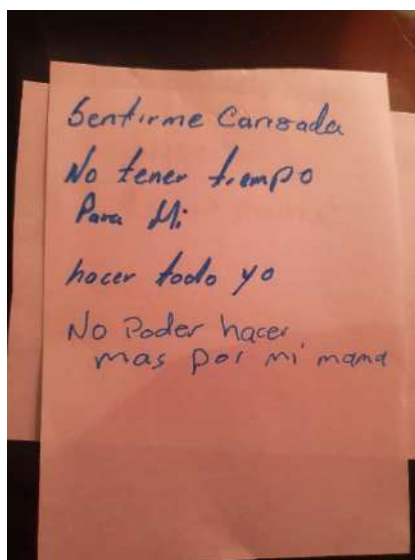 Sentirme Cansada
No tener tiempo
Para Mi
hacer todo yo
No Poder hacer
mas por mi mama